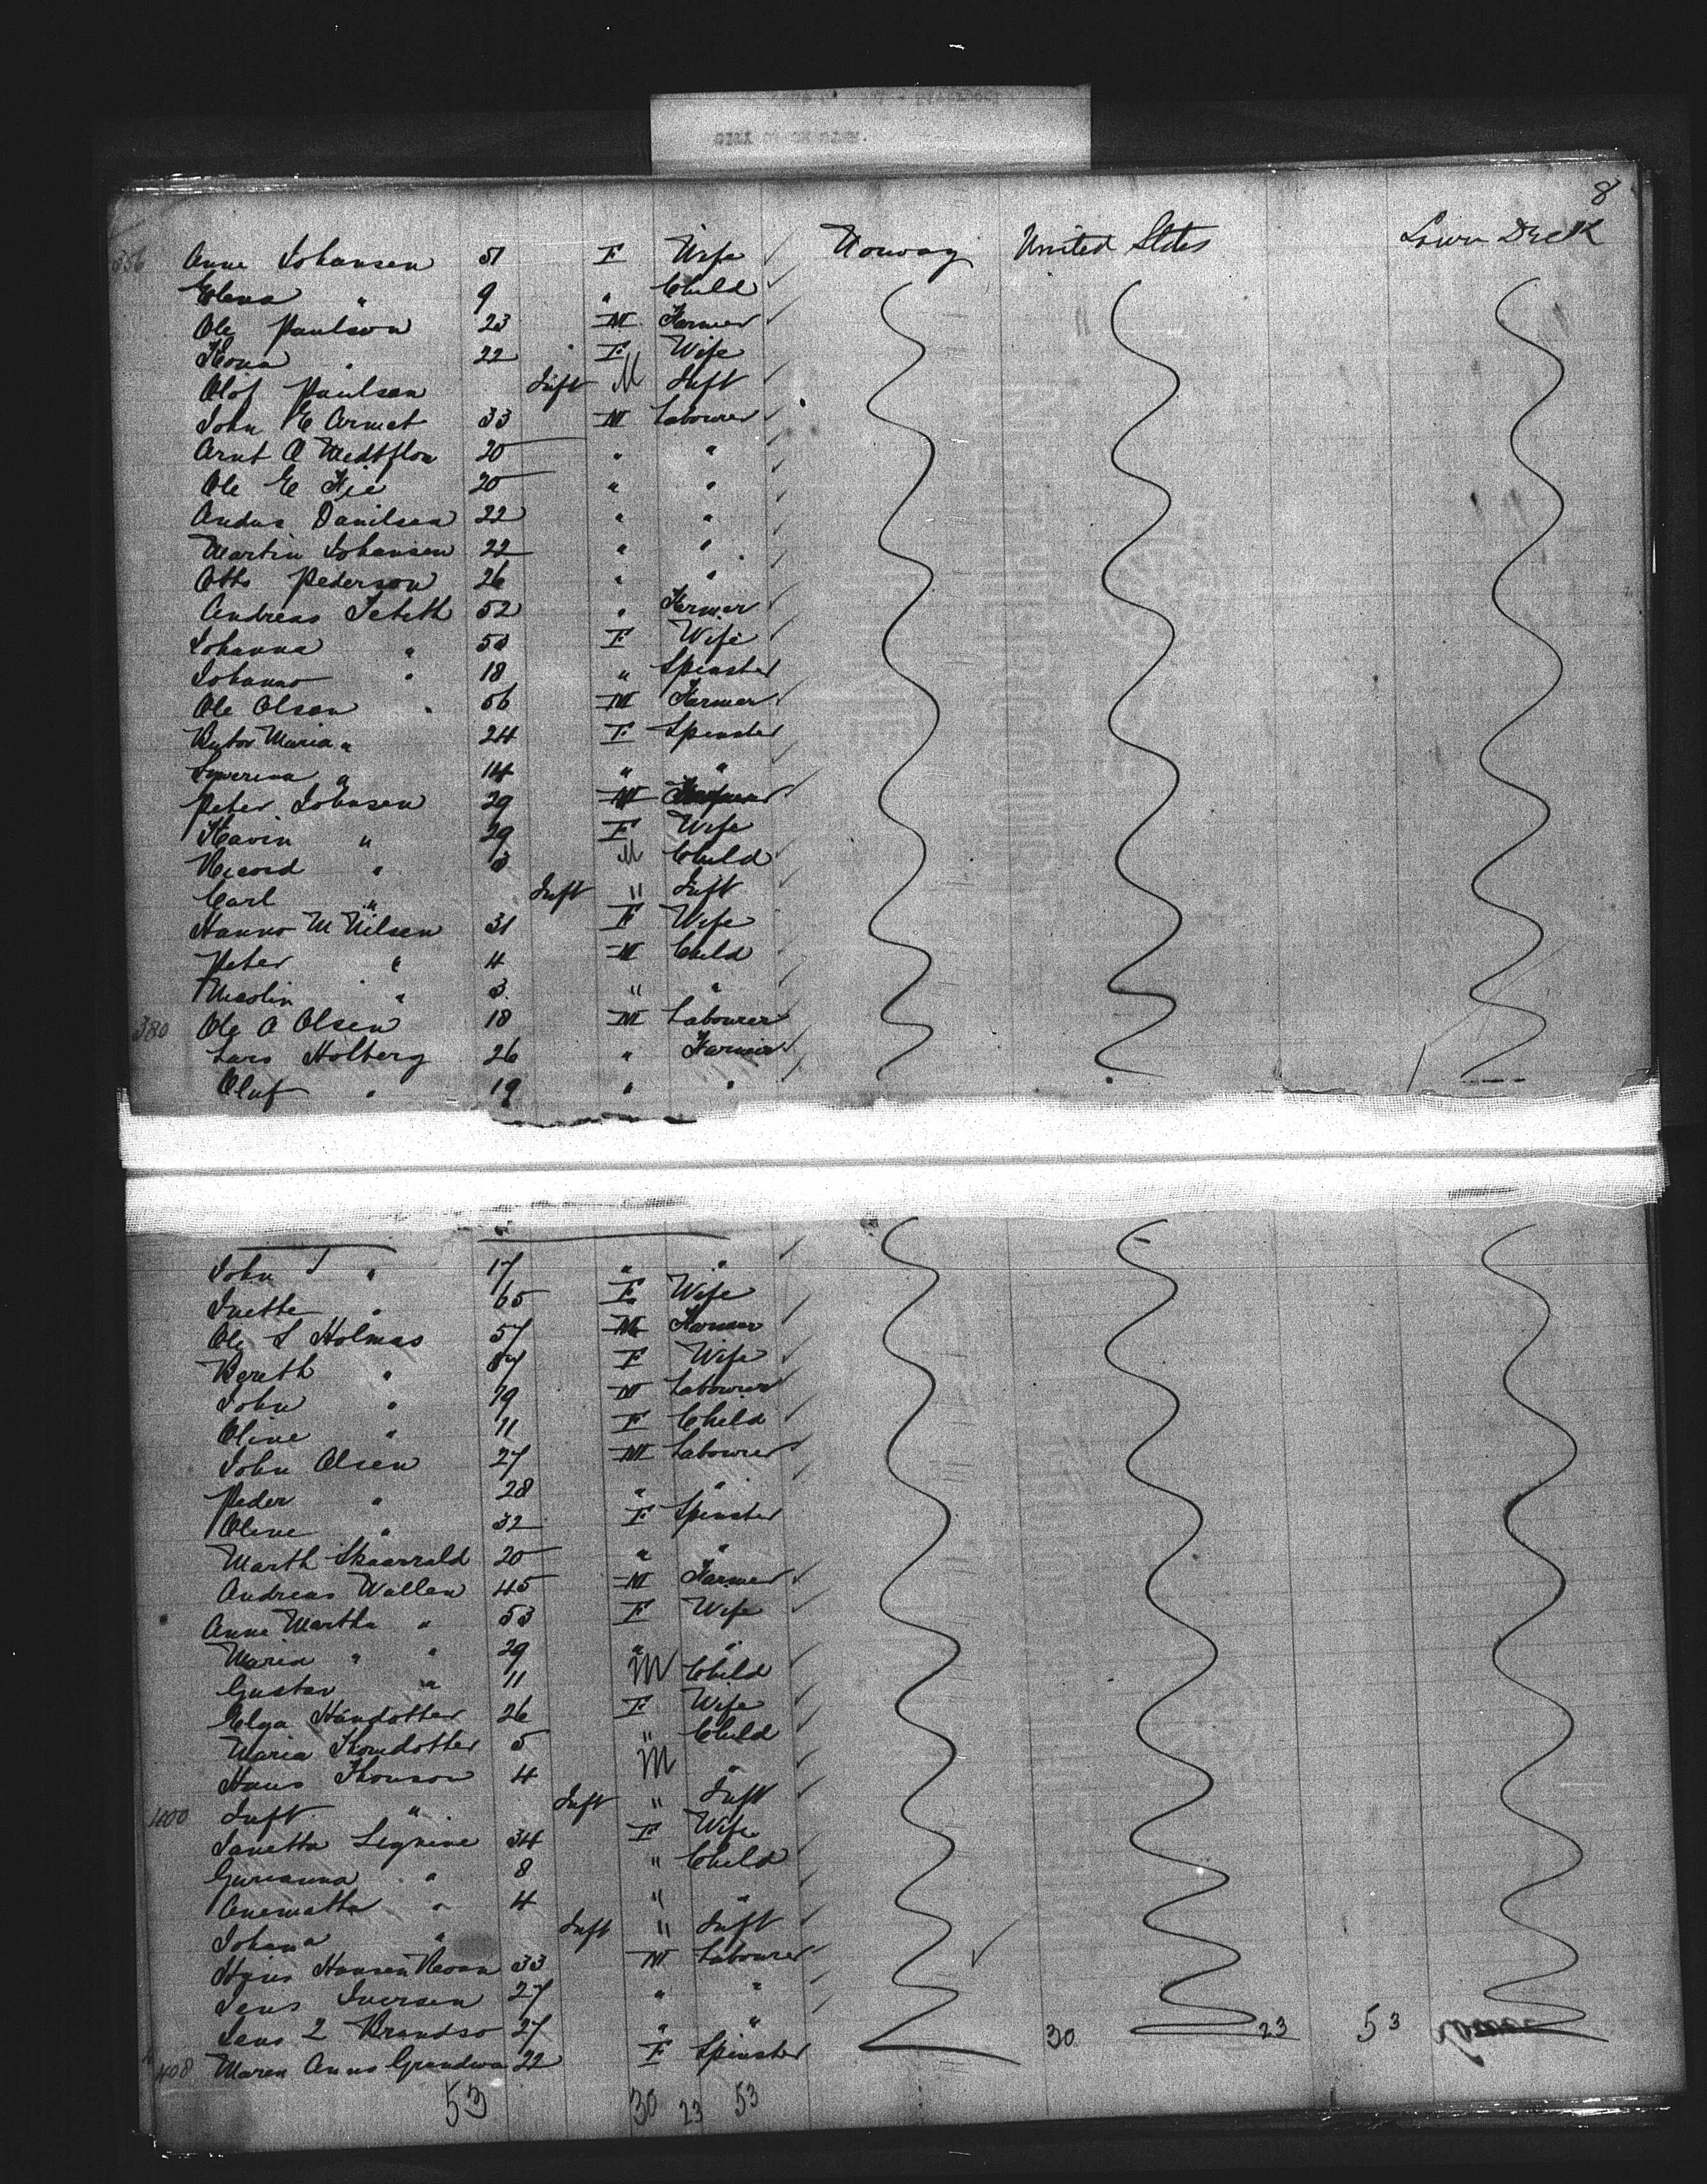 8
356 Anne Johansen 51 F Wife Norway United States Lower Deck
Elena " 9 " Child
Ole Paulson 23 M Farmer
" 22 F Wife
Olof Paulsen Inft M Inft
John E Armet 33 M Labourer
Arnt A 20 " "
Ole E Fie 20 " "
Andus Danilsen 22 " "
Martin Johansen 22 " "
Otto Pederson 26 " "
Andreas 52 " Farmer
Johanna " 50 F Wife
Johanna " 18 " Spinster
Ole Olson " 56 M Farmer
Maria " 24 F Spinster
Severina " 14 " "
Peter Johnsen 29 M
Karin " 29 F Wife
Ricord " 3 M Child
Carl " Inft " Inft
Hanna M Nilsen 31 F Wife
Peter " 4 M Child
" 3 " "
380 Ole A Olsen 18 M Labourer
Lars Holberg 26 " Farmer
Oluf " 19 " "
John J " 17 " "
" 65 F Wife
Ole L Holmas 57 M Farmer
Bereth " 57 F Wife
John " 19 M Labourer
Oline " 11 F Child
John Olsen 27 M Labourer
Peder " 28 " "
Oline " 32 F Spinster
Marth 20 " "
Andreas Wallen 45 M Farmer
Anne Martha " 53 F Wife
Maria " " 29 " "
Gustav " 11 M Child
Elga 26 F Wife
Maria 5 " Child
Hans Thonson 4 M "
400 Inft " Inft " Inft
Janetta 34 F Wife
" 8 " Child
Anematta " 4 " "
Johana " Inft " Inft
Hans Hansen 33 M Labourer
Jens Iversen 27 " "
Jens 27 " "
30 23 53
408 Maren Anna 22 F Spinster
53 30 23 53